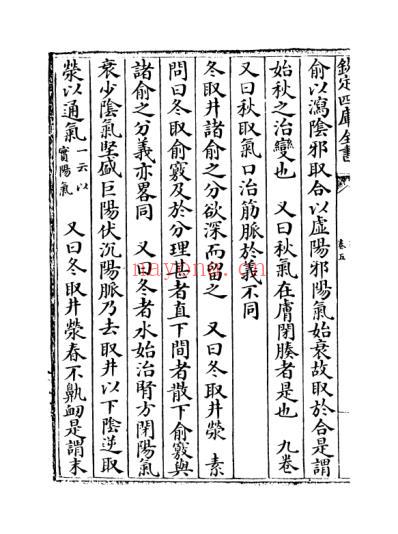 欽定四庫全書
卷五
俞以瀉陰邪取合以虛陽邪陽氣始衰故取於合是謂
始秋之治變也 又曰秋氣在膚閉腠者是也 九卷
又曰秋取氣口治筋脈於義不同
冬取井諸俞之分欲深而留之 又曰冬取井滎 素
問曰冬取俞竅及於分理甚者直下間者散下俞竅與
諸俞之分義亦畧同 又曰冬者水始治腎方閉陽氣
衰少陰氣堅盛巨陽伏沉陽脈乃去取井以下陰逆取
滎以通氣 一云以實陽氣 又曰冬取井滎春不鼽衄是謂末